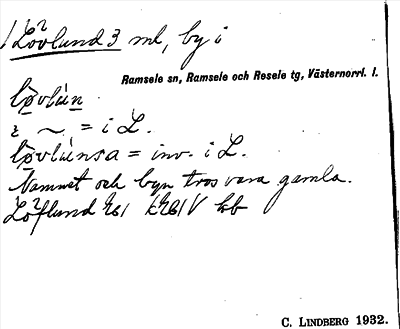 Lövlund 3 ml, by i
Ramsele sn, Ramsele och Resele tg, Västernorrl. l.
lövlún
i ~ = i L.
lövlúnsa = inv. i L.
Namnet och byn tros vara gamla.
Löflund
C. LINDBERG 1932.